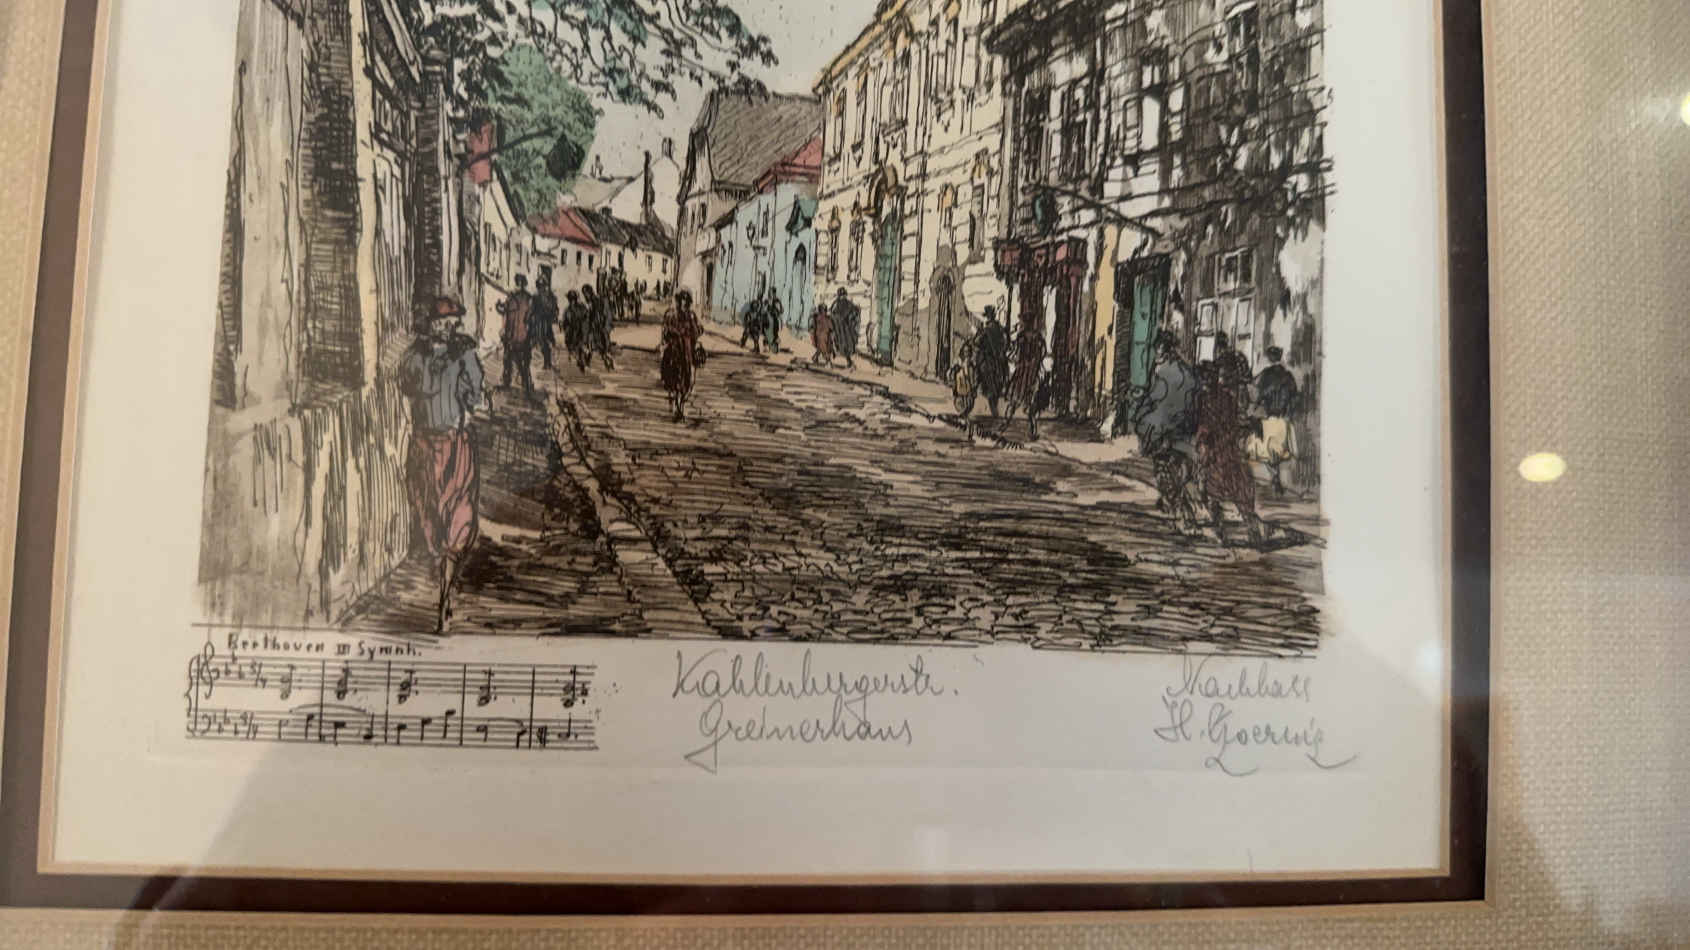 Beethoven III Symph.
Kahlenbergerstr.
Greinerhaus
H. Goering